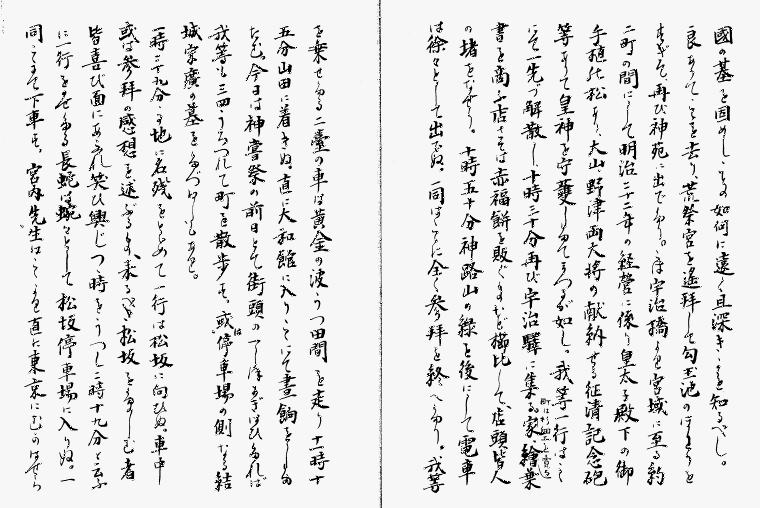 國の基を固めしことの如何に遠く且深きことを知るべし。
良ありてこゝを去り荒祭宮を遙拜して勾玉池のほとりを
すぎて、再び神苑に出でたり。こは宇治橋より宮域に至る約
二町の間にして明治二十二年の経營に係り皇太子殿下の御
手植の松あり、大山、野津両大将の献納せる征清記念砲
等ありて皇神を守護しまゐらするが如し。我等一行はこゝ
にて一先づ解散し、十時三十分再び宇治驛に集る。家、繪葉
書を商ふ店さては赤福餅を販ぐなど櫛比して、店頭皆人
の堵をなせり。十時五十分神路山の緑を後にして電車
は徐々として出でぬ。一同はこゝに全く参拜を終へたり。我等
を乗せたる二臺の車は黄金の波うつ田間を走り十一時十
五分山田に着きぬ。直に大和館に入りこゝにて晝餉をしたゝ
たむ。今日は神嘗祭の前日とて街頭の
我等も三四うちつれて町を散歩す。或は停車場の側なる結
城宗廣の墓をたづねしもあり。
一時三十九分この地に名残をとゞめて一行は松坂に向ひぬ。車中
或は参拜の感想を述ぶるもの、来るべき松坂をたのしむ者
皆喜び面にあふれ笑ひ興じつゝ時をうつし二時十九分と云ふ
に一行をのせたる長蛇は蜿々として松坂停車場に入りぬ。一
同こゝにて下車す。宮内先生はこゝより直に東京にむかはせら